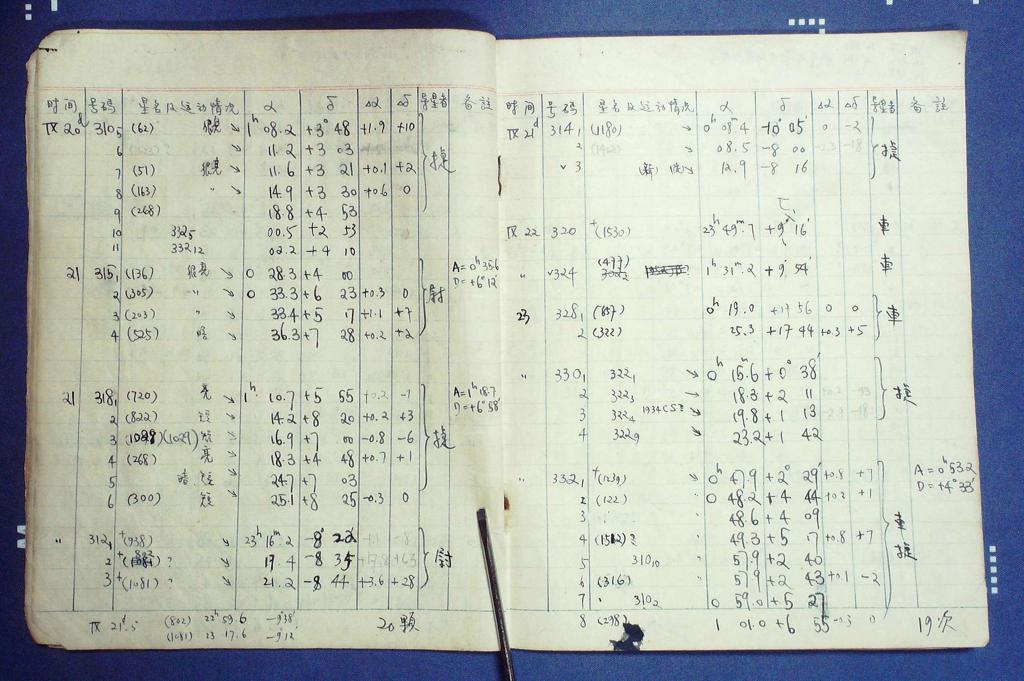 时间 号码 星名及运动情况 α δ Δα Δδ 导星者 备註
IX 20ᵈ 310₅ (62) 很亮 ↘ 1ʰ 08.2 +3° 48 +1.9 +10
6 11.2 +3 03
7 (51) 很亮 ↘ 11.6 +3 21 +0.1 +2 捷
8 (163) 〃 ↘ 14.9 +3 30 +0.6 0
9 (268) 18.8 +4 53
10 332₅ 00.5 +2 53
11 332₁₂ 02.2 +4 10
21 315₁ (136) 很亮 ↘ 0 28.3 +4 00 A=0ʰ35.6
2 (305) 〃 ↘ 0 33.3 +6 23 +0.3 0 尉 D=+6°12'
3 (203) 〃 33.4 +5 17 +1.1 +7
4 (525) 暗 ↘ 36.3 +7 28 +0.2 +2
21 318₁ (720) 亮 ↘ 1ʰ 10.7 +5 55 +0.2 -1 A=1ʰ18.7
2 (822) 短 ↘ 14.2 +8 20 +0.2 +3 D=+6°58'
3 (1029) 短 ↘ 16.9 +7 00 -0.8 -6 捷
4 (268) 亮 ↘ 18.3 +4 48 +0.7 +1
5 暗 短 24.7 +7 03
6 (300) 短 ↘ 25.1 +8 25 -0.3 0
〃 312₁ +(938) ↘ 23ʰ 16ᵐ.2 -8° 22'
2 + ? ↘ 19.4 -8 35 尉
3 +(1081) ? ↘ 21.2 -8 44 +3.6 +28
IX 21ᵈ.5 (802) 22ʰ 59.6 -9°38' 20顆
(1081) 23 17.6 -9°12
时间 号码 星名及运动情况 α δ Δα Δδ 导星者 备註
IX 21ᵈ 314₁ (1180) ↘ 0ʰ 08ᵐ4 -10° 05' 0 -2
2 ↘ 08.5 -8 00 捷
v 3 (新) ↘ 12.9 -8 16
IX 22 320 +(1530) 23ʰ 49ᵐ.7 +9° 16' 車
〃 v324 (499) 1ʰ 31ᵐ.2 +9° 54' 車
23 328₁ (857) 0ʰ 19.0 +17 56 0 0 車
2 (322) 25.3 +17 44 +0.3 +5
〃 330₁ 322₁ ↘ 0ʰ 15ᵐ.6 +0° 38'
2 322₃ ↘ 18.3 +2 11 捷
3 322₄ 1934CS? ↗ 19.8 +1 13
4 322₉ ↘ 23.2 +1 42
〃 332₁ +(1239) ↘ 0ʰ 47.9 +2° 29' +0.8 +7 A=0ʰ53.2
2 (122) ↘ 0 48.2 +4 44 +0.2 +1 D=+4°33'
3 48.6 +4 09
4 (1512)? 〃 49.3 +5 17 +0.8 +7 車
5 310₁₀ 〃 57.9 +2 40 捷
6 (316) 〃 57.9 +2 43 +0.1 -2
7 310₂ 0 59.0 +5 27
8 (298) 1 01.0 +6 55 -0.3 0 19次